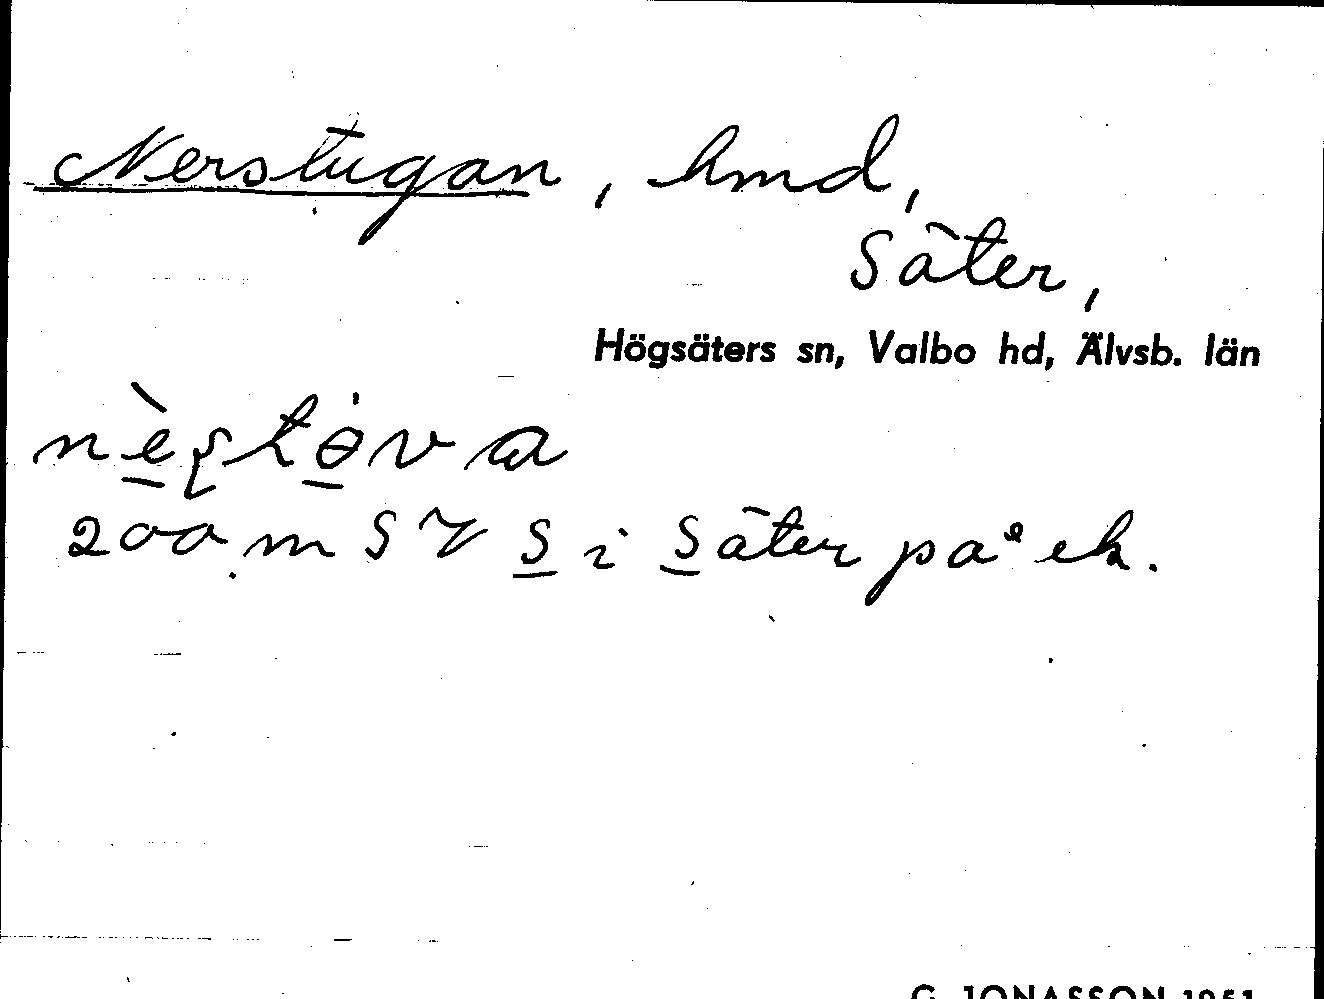 Nerstugan, hmd,
Säter,
Högsäters sn, Valbo hd, Älvsb. län
nèʂtɵ̇va
200 m SV S i Säter på ek.
G. JONASSON 1951